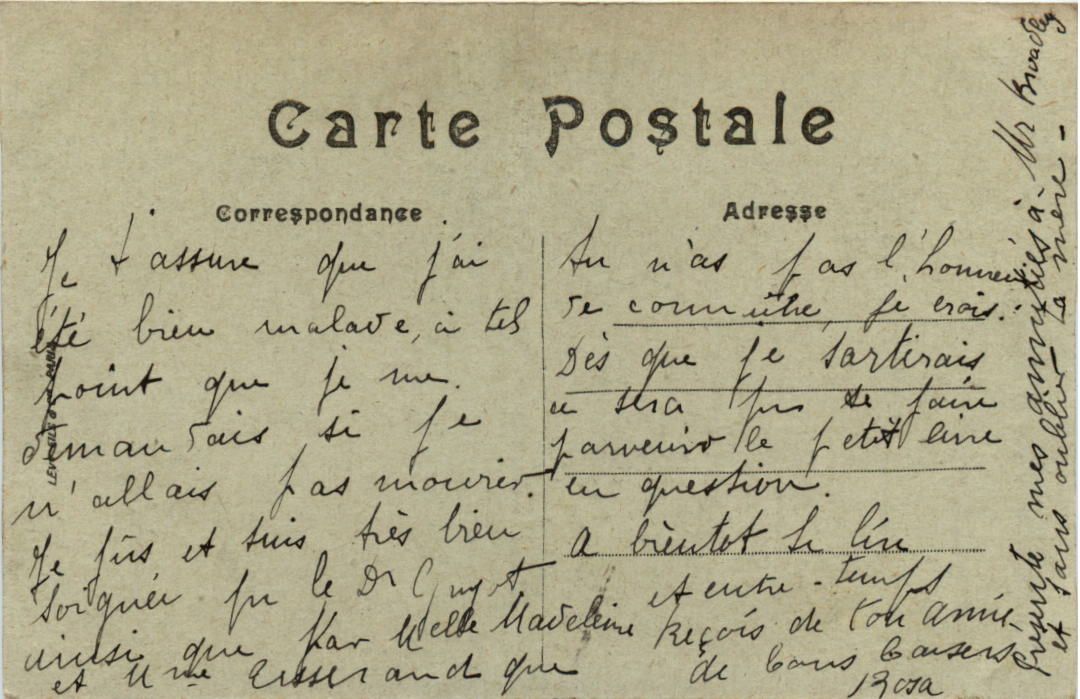 Carte Postale
Correspondance
Adresse
Je t'assure que j'ai
été bien malade, à tel
point que je me
demandais si je
n'allais pas mourir.
Je fûs et suis très bien
soignée par le Dr Guyot
ainsi que par Melle Madeleine
et Mme Eisserand que
tu n'as pas l'honneur
de connaître, je crois.
Dès que je sortirais
ce sera pr te faire
parvenir le petit livre
en question.
A bientôt te lire
et entre-temps
Reçois de ton amie
de bons baisers
Rosa
présente mes amitiés à Mr Bradley
et sans oublier ta mère -